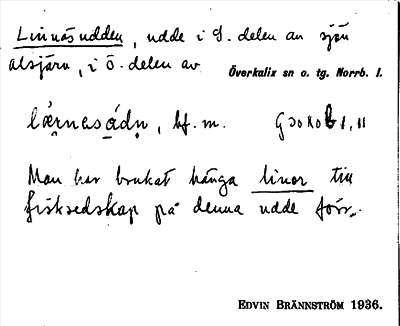 Linnäsudden, udde i S. delen av sjön
Alsjärv, i Ö. delen av Överkalix sn o. tg. Norrb. l.
bf. m.
Man har brukat hänga linor till
fiskredskap på denna udde förr.
EDVIN BRÄNNSTRÖM 1936.